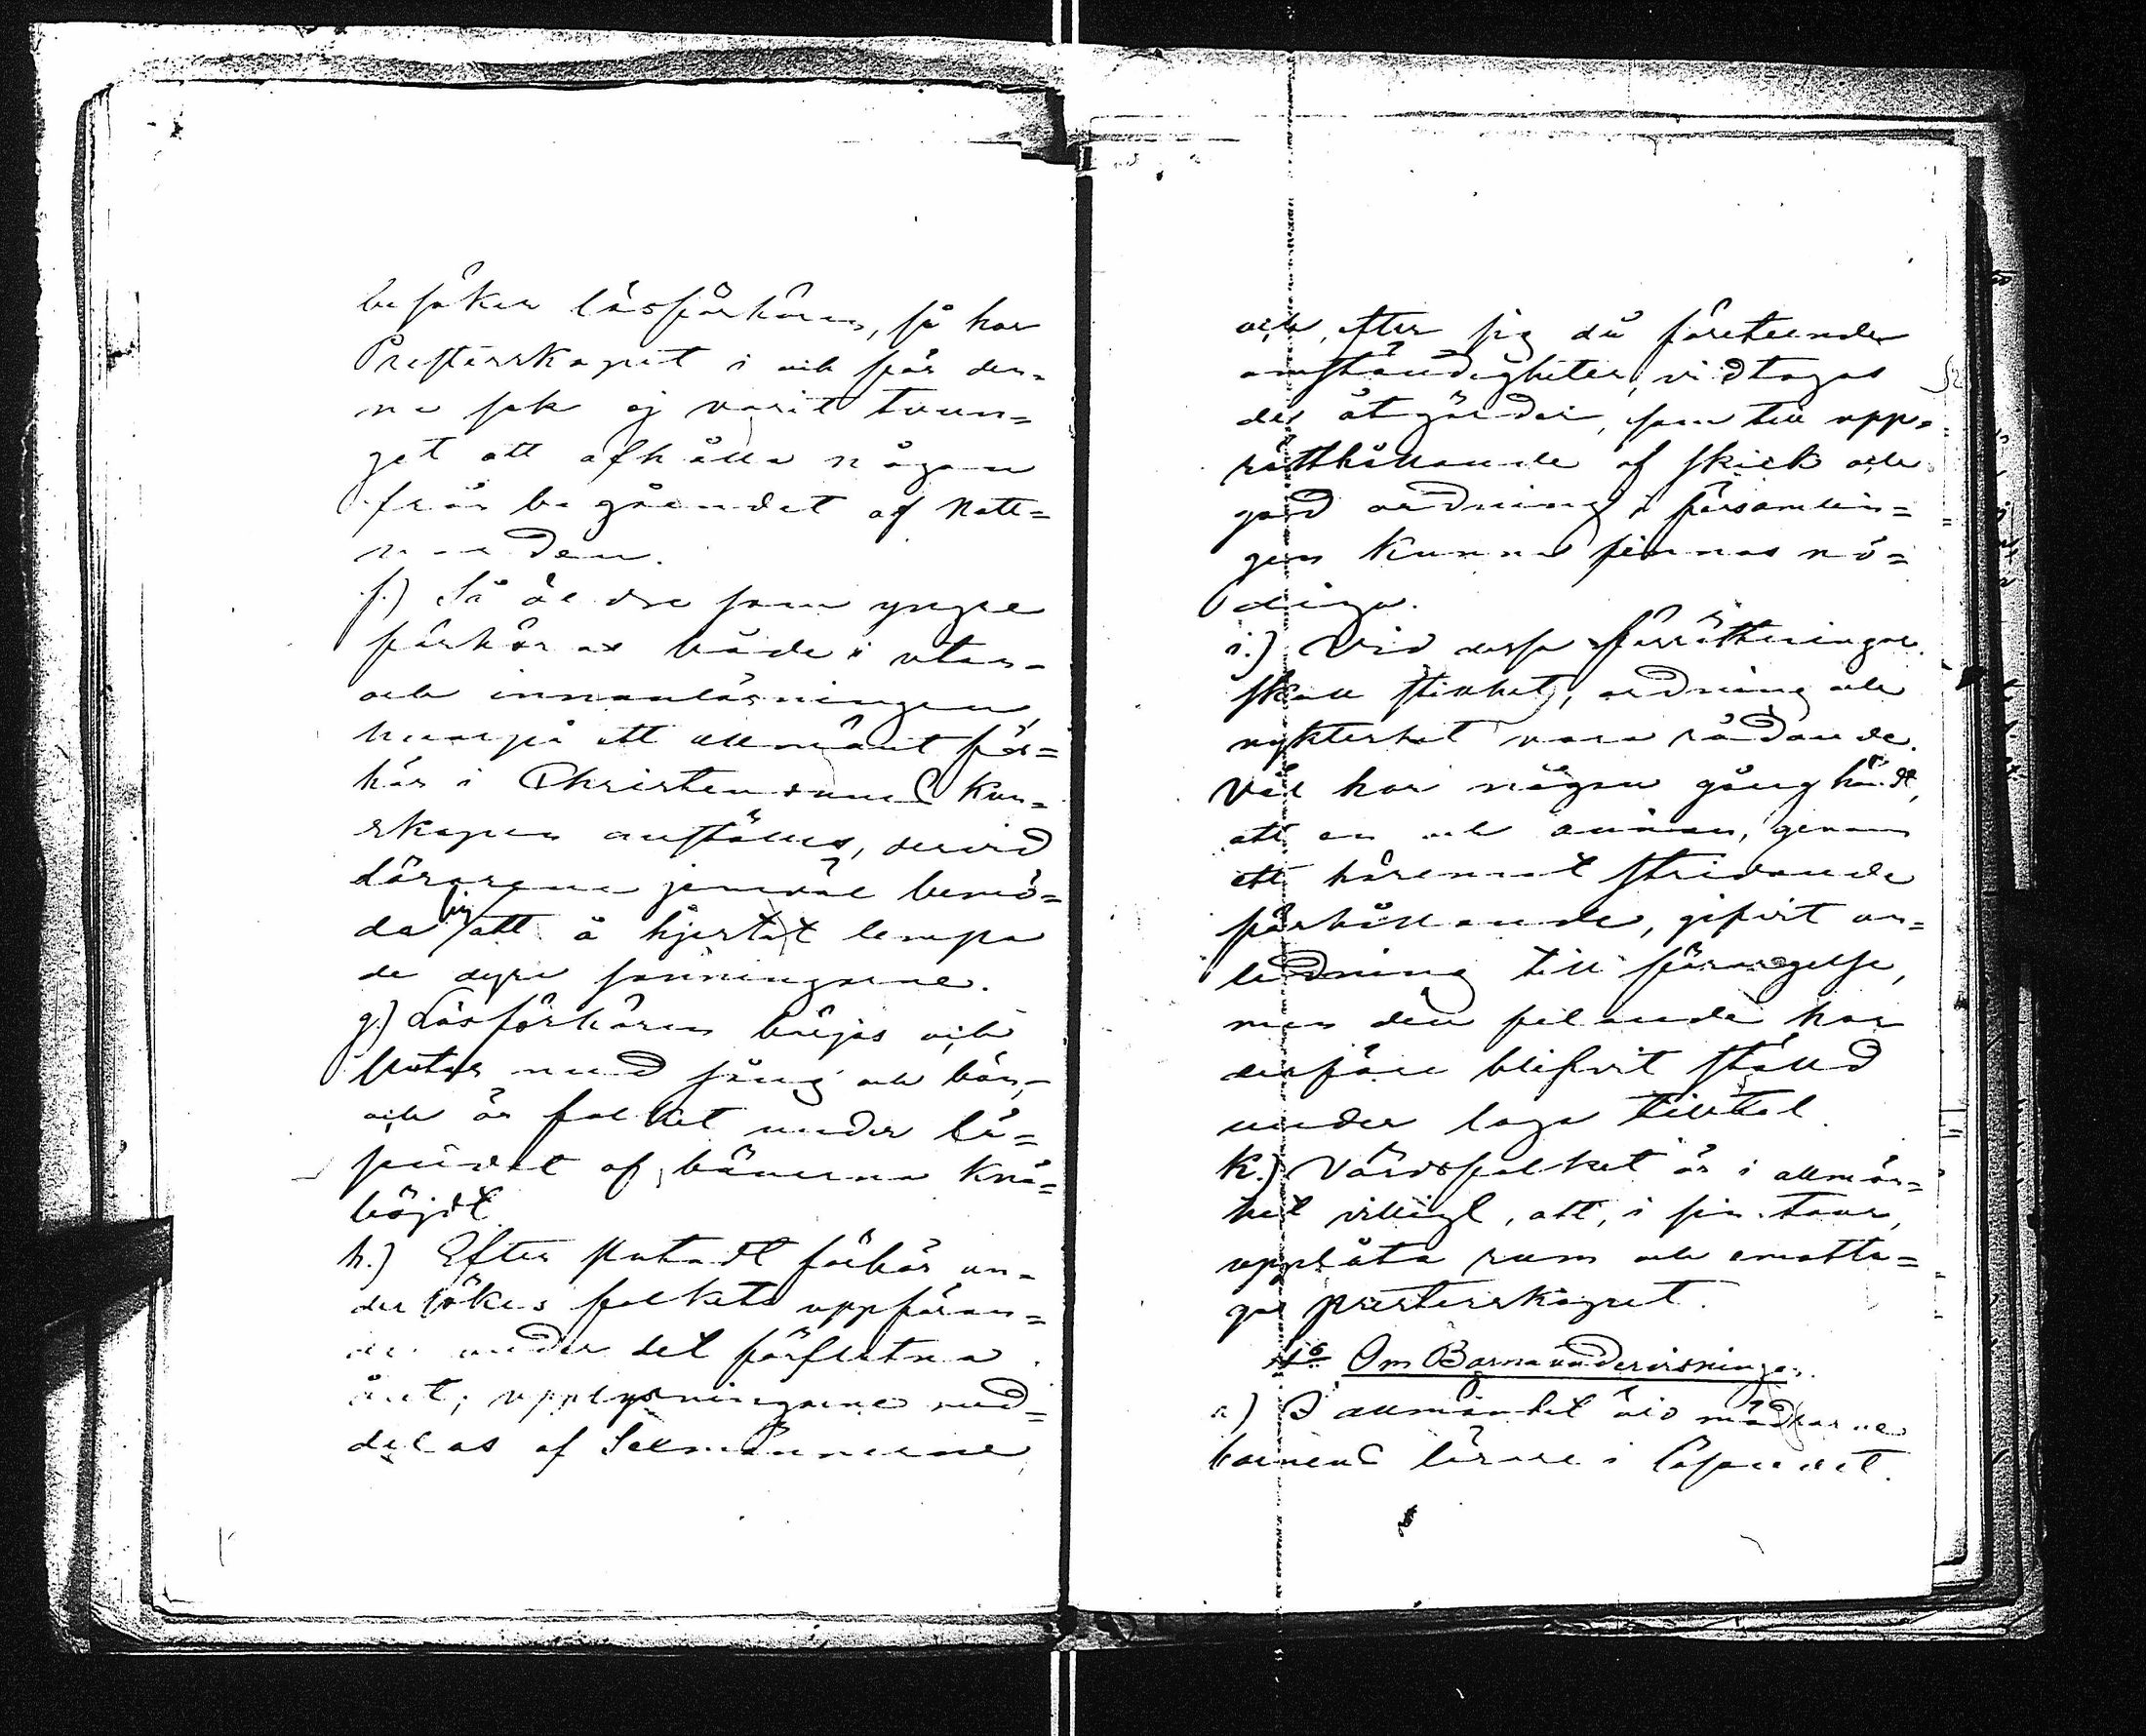 besöker läsförhören, så har
Presterskapet i och för den-
na sak ej varit tvun=
get att afhålla någon
från begåendet af Natt=
varden.
f.) Så äldre som yngre
förhöras både i utan-
och innanläsningen,
hvarpå ett allmänt för=
hör i Christendoms kun-
skapen anställes, dervid
Lärarena jemväl bemö=
da sig att å hjertat lempa
de dyra sanningarne.
g.) Läsförhören börjas och
slutas med sång och bön,
och är folket under lä=
sandet af bönerna knä=
böjdt.
h.) Efter slutadt förhör un-
dersökes folkets uppföran=
de under det förflutna
året; upplysningarne med=
delas af Sexmännerne,
och, efter sig då företeende
omständigheter, vidtagas
de åtgärder, som till upp-
rätthållande af skick och
god ordning i församlin=
gen kunna finnas nö=
diga.
i.) Vid dessa förrättningar
skall stillhet, ordning och
nykterhet vara rådande.
Väl har någon gång händt,
att en och annan, genom
ett häremot stridande
förhållande, gifvit an=
ledning till förargelse,
men den felande har
derföre blifvit ställd
under laga tilltal.
k.) Värdsfolket är i allmän=
het villigt, att, i sin tour,
upplåta rum och emotta=
ga presterskapet.
Om Barnaundervisningen.
a) I allmänhet äro mödrarne
barnens lärare i läsandet.